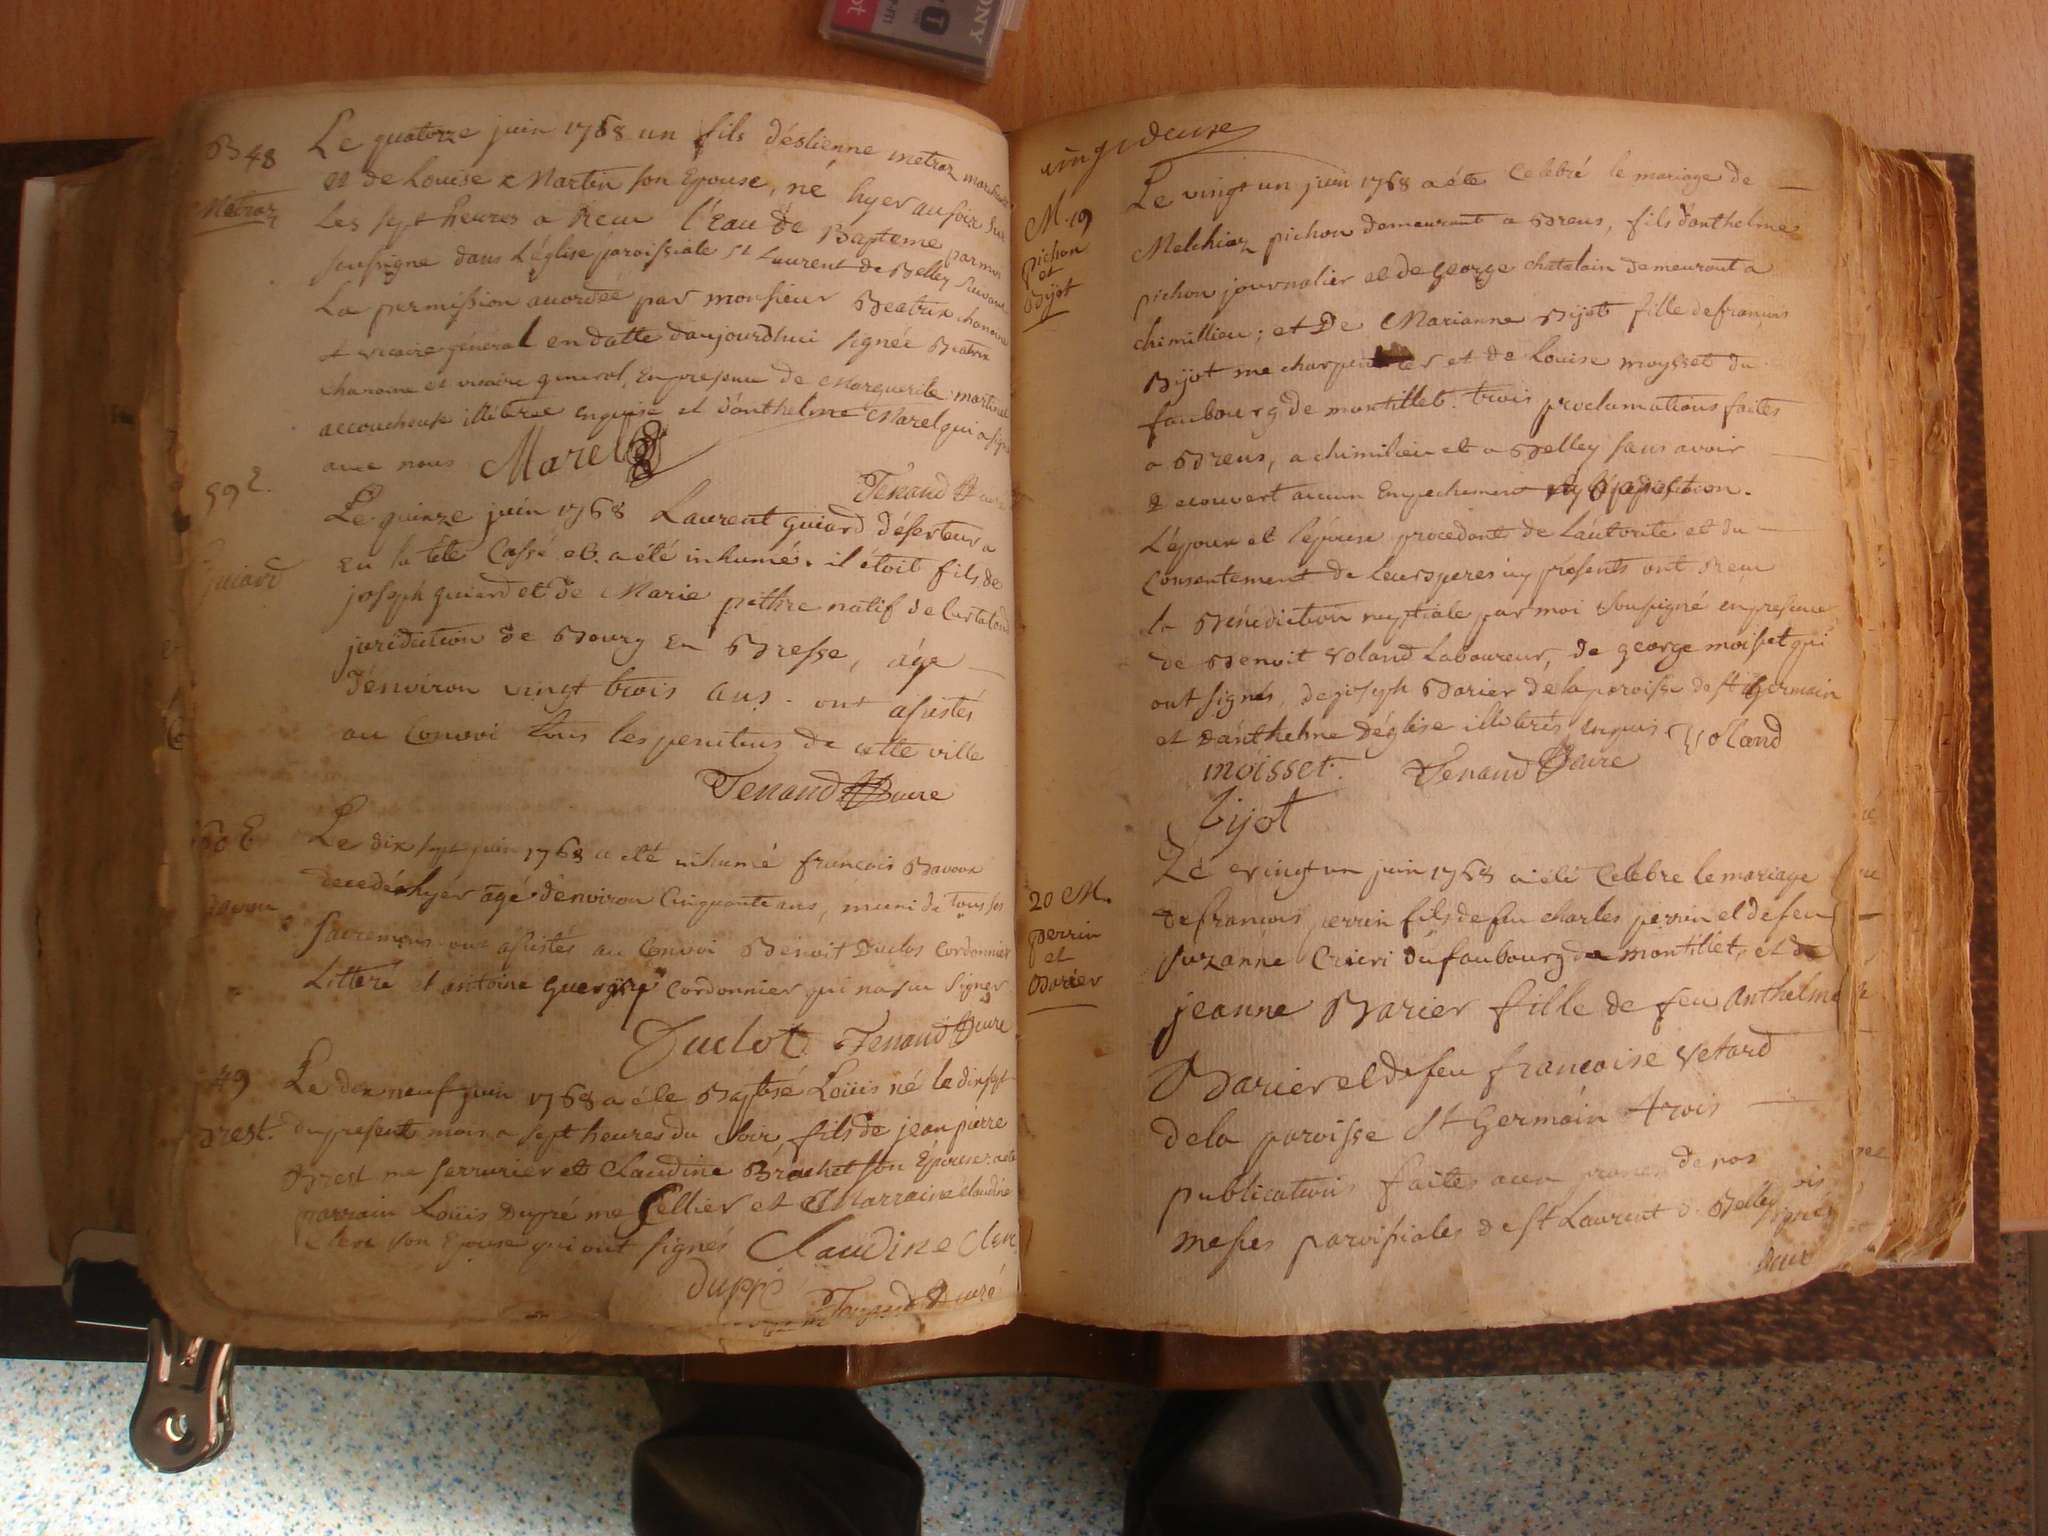 SONY
B 48
Metraz
Le quatorze juin 1768 un fils d'éstienne metraz marchand
et de Louise Martin son Epouse, né hyer au soir sur
les sept heures a Recu l'Eau de Bapteme par moi
soussigne dans l'église paroissiale st Laurent de Belley suivant
La permission accordée par monsieur Beatrix chanoine
et vicaire général en datte d'aujourd'hui signée Beatrix
chanoine et vicaire general, En presence de Marguerite martinet
accoucheuse illiteree enquise et d'anthelme Marel qui a signé
avec nous Marel
Tenand Curé
59 E.
guiard
Le quinze juin 1768 Laurent guiard déserteur a
Eu la tête Cassé et a été inhumé. il étoit fils de
joseph guiard et de Marie pethre natif de
juridiction de Bourg en Bresse, age
d'environ vingt trois ans. ont assistés
au Convoi tous les penitens de cette ville
Tenand Curé
60 E
Bavoux
Le dix sept juin 1768 a eté inhumé francois Bavoux
decedé hyér agé d'environ Cinquante ans, muni de tous ses
sacremens ont assistés au Convoi Benoit Duclos Cordonnier
Litteré et antoine Cordonnier qui na su signer
Duclot Tenand Curé
49
Brest.
Le dix neuf juin 1768 a été Baptisé Loüis né le dixsept
du present mois a sept heures du soir, fils de jean pierre
Brest me serrurier et Claudine Brachet son Epouse. a eté
parrain Loüis Dupré me Sellier et Marraine claudine
Clerc son Epouse qui ont signés Claudine Clerc
duppé Tenand Curé
vingt deuxe
M. 19
pichon
et
Bijot
Le vingt un juin 1768 a été Celebré le mariage de
Melchior pichon demeurant a Brens, fils d'anthelme
pichon journalier et de george chatelain demeurant a
chimillieu; et De Marianne Bijot fille de francois
Bijot me charpentier et de Louise moysset du
faubourg de montillet. trois proclamations faites
a Brens, a chimilieu et a Belley sans avoir
decouvert aucun Empechement ny opposition.
L'époux et l'épouse procedant de L'autorité et du
Consentement de leurs peres icy présents ont Recu
la Bénédiction nuptiale par moi soussigné en presence
de Benoit Voland Laboureur, de george moisset qui
ont signés, de joseph Barier de la paroisse de st Germain
et d'anthelme D'église illiterés enquis Voland
moisset. Tenand Curé
bijot
20 M.
perrin
et
Barier
Le vingt un juin 1768 a été Celebre le mariage
de francois perrin fils de feu charles perrin et de feu
suzanne Crieri du faubourg de montillet, et de
jeanne Barier fille de feu Anthelme
Barier et de feu francoise Vetard
de la paroisse St Germain trois
publications faites aux prones de nos
messes paroissiales de St Laurent de Belley